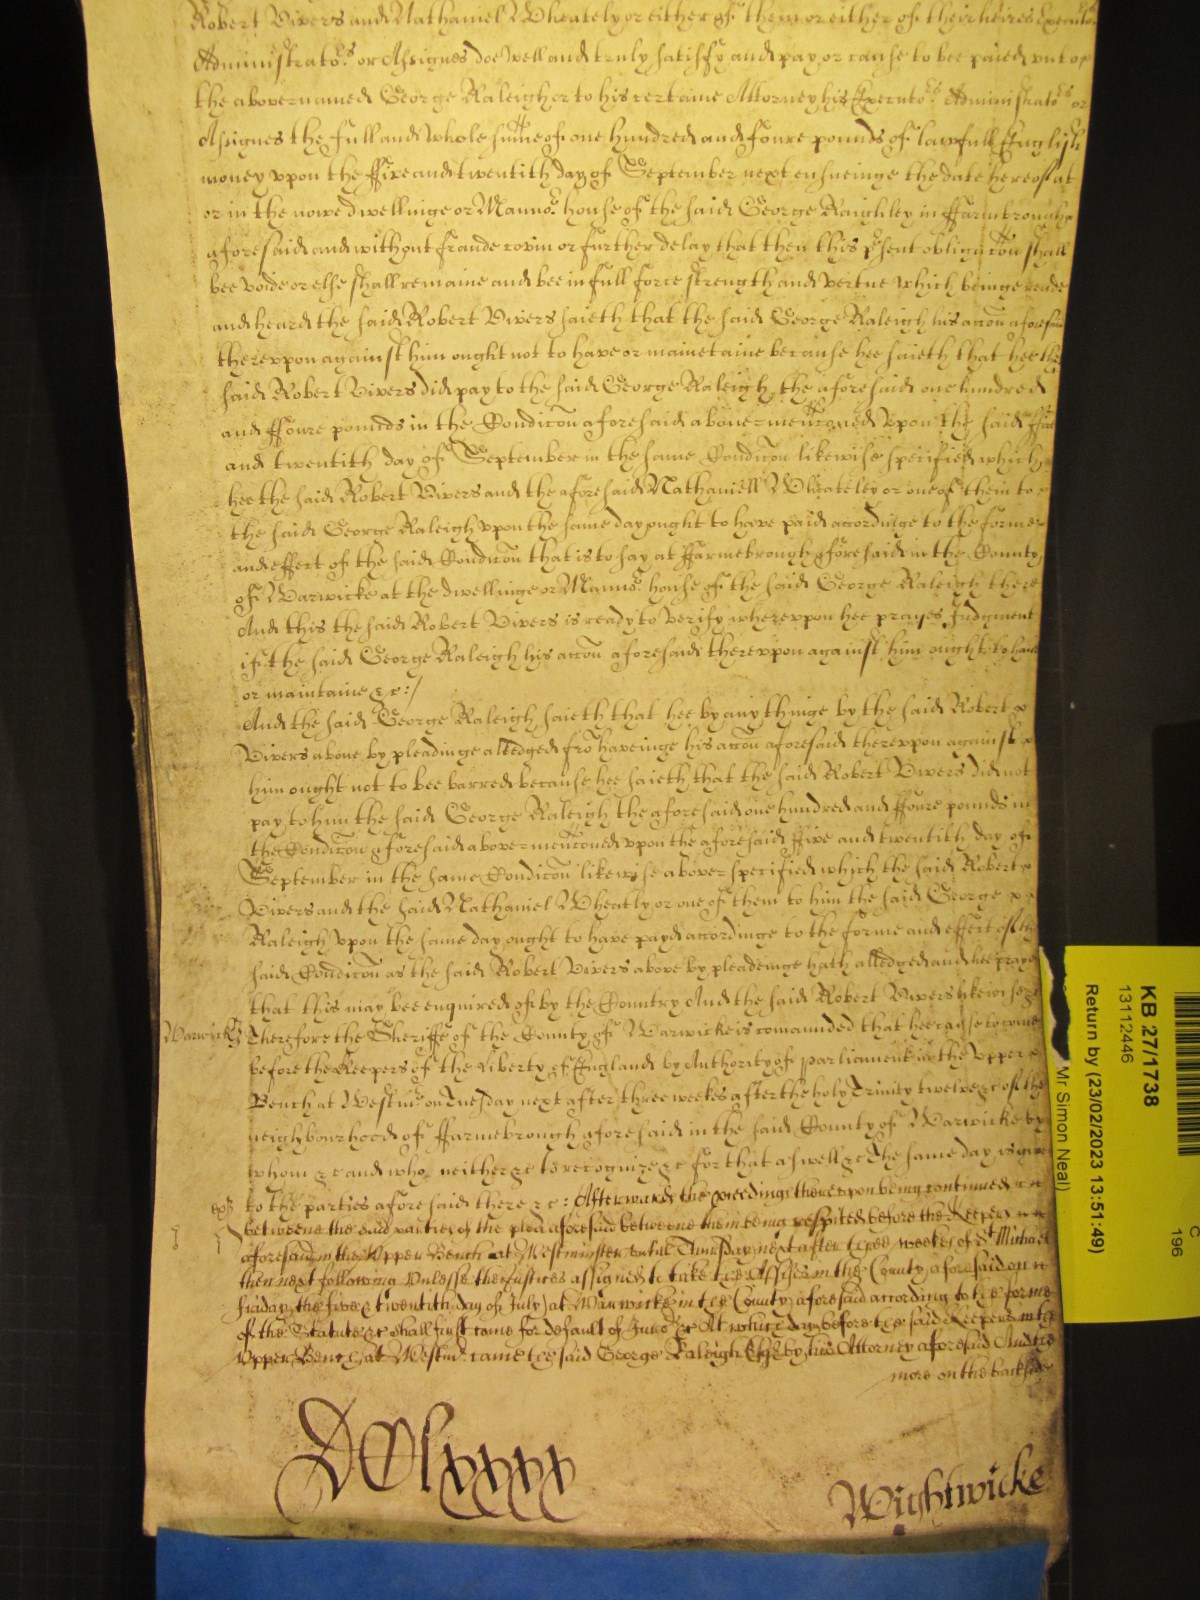 Robert Vivers and Nathaniel Wheately or either of them or either of their heires Executo.rs
Administrato.rs or Assignes doe well and truly satisfy and pay or cause to bee paied unto
the abovenamed George Raleigh or to his certaine Attorney his Executo.rs Administrato.rs or
Assignes the full and whole su~me of one hundred and foure pounds of lawfull English
money vpon the ffive and twentith day of September next ensueinge the date hereof at
or in the nowe dwellinge or Manno.r house of the said George Raighley in ffarmbrough
aforesaid and without fraude covin or further delay that then this p~sent obligac~on shall
bee voide or else shall remaine and bee in full force strength and vertue Which beinge reade
and heard the said Robert Vivers saieth that the said George Raleigh his acc~on aforesaid
therevpon against him ought not to have or mainetaine because hee saieth that hee the
said Robert Vivers did pay to the said George Raleigh the aforesaid one hundred
and ffoure pounds in the Condic~on aforesaid above menc~oned Vpon the said ffive
and twentith day of September in the same Condic~on likewise specified which
hee the said Robert Vivers and the aforesaid Nathaniell Wheateley or one of them to
the said George Raleigh vpon the same day ought to have paid accordinge to the forme
and effect of the said Condic~on that is to say at ffarmebrough aforesaid in the County
of Warwicke at the dwellinge or Manno.r house of the said George Raleigh there
And this the said Robert Vivers is ready to verify wherevpon hee prayes Judgment
if the said George Raleigh his acc~on aforesaid therevpon against him ought to have
or maintaine &c:/
And the said George Raleigh saieth that hee by any thinge by the said Robert
Vivers above by pleadinge alledged fro~ haveinge his acc~on aforesaid therevpon against
him ought not to bee barred because hee saieth that the said Robert Vivers did not
pay to him the said George Raleigh the aforesaid one hundred and ffoure pounds in
the Condic~on aforesaid above menc~oned vpon the aforesaid ffive and twentith day of
September in the same Condic~on likewise above specified which the said Robert
Vivers and the said Nathaniel Wheatly or one of them to him the said George
Raleigh Vpon the same day ought to have payd accordinge to the forme and effect of the
said Condic~on as the said Robert Vivers above by pleadeinge hath alledged and hee prayes
that this may bee enquired of by the Country And the said Robert Vivers likewise &c
Warwick Therefore the Sheriffe of the County of Warwicke is comaunded that hee cause to come
before the Keepers of the Liberty of England by Authority of parliament in the Vpper
Bench at Westm~ on Tuesday next after three weekes after the holy Trinity twelve &c of the
neighbourhood of ffarmebrough aforesaid in the said County of Warwicke by
whom &c and who neither &c to recognize &c for that aswell &c The same day is given
to the parties aforesaid there &c: Afterwards the p~ceedings therevpon being continued
betweene the said parties of the plea aforesaid betweene them being respited before the Keepers
aforesaid in the Vpper Bench at Westminster vntill Thursday next after three weekes of St Michael
then next following Vnlesse the Justices assigned to take the Assises in the County aforesaid on
friday the five & twentith day of July at Warwicke in the County aforesaid according to the forme
of the Statute &c shall first come for default of Juro.rs &c At which day before the said Keepers in the
Vpper Bench at Westm~ came the said George Raleigh by his Attorney aforesaid And the
more on the backside
DClxxxx
Wightwicke
KB 27/1738
13112446
Return by (23/02/2023 13:51:49)
Mr Simon Neal)
C
196